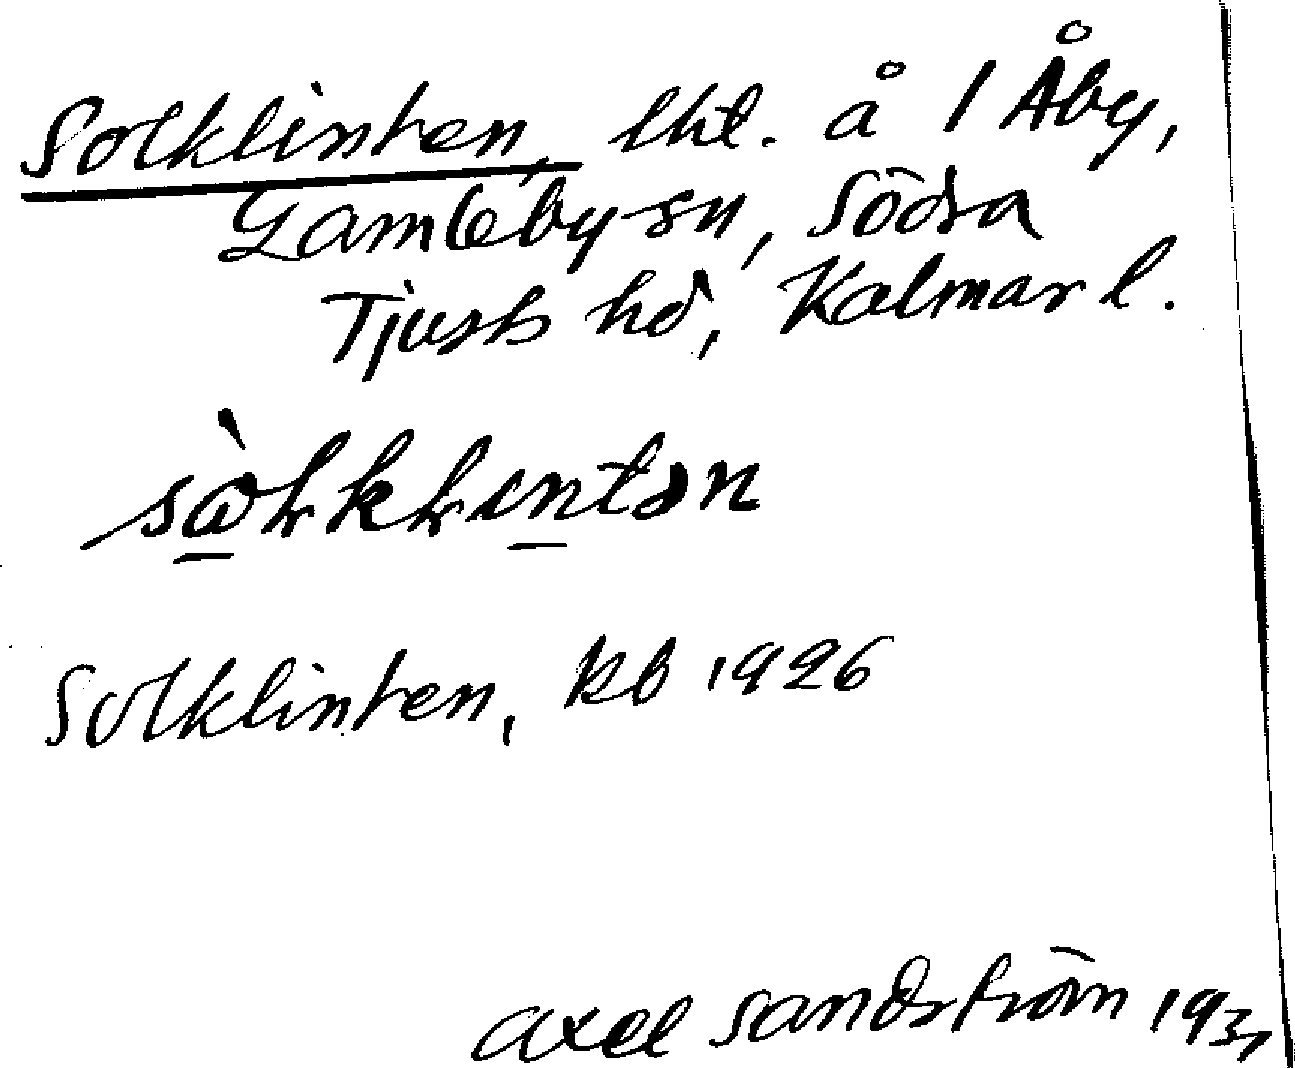 Solklinten, lht. å 1 Åby,
Gamleby sn, Södra
Tjusts hd, Kalmar l.
Solklinten, kb 1926
Axel Sandström 1931